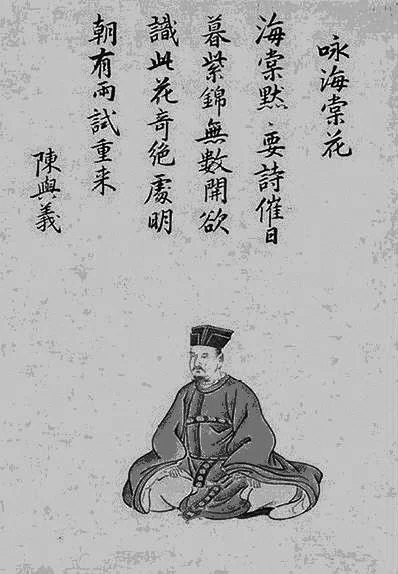 咏海棠花
海棠黙〻要詩催日
暮紫錦無数開欲
識此花奇絶處明
朝有雨試重来
陳與義